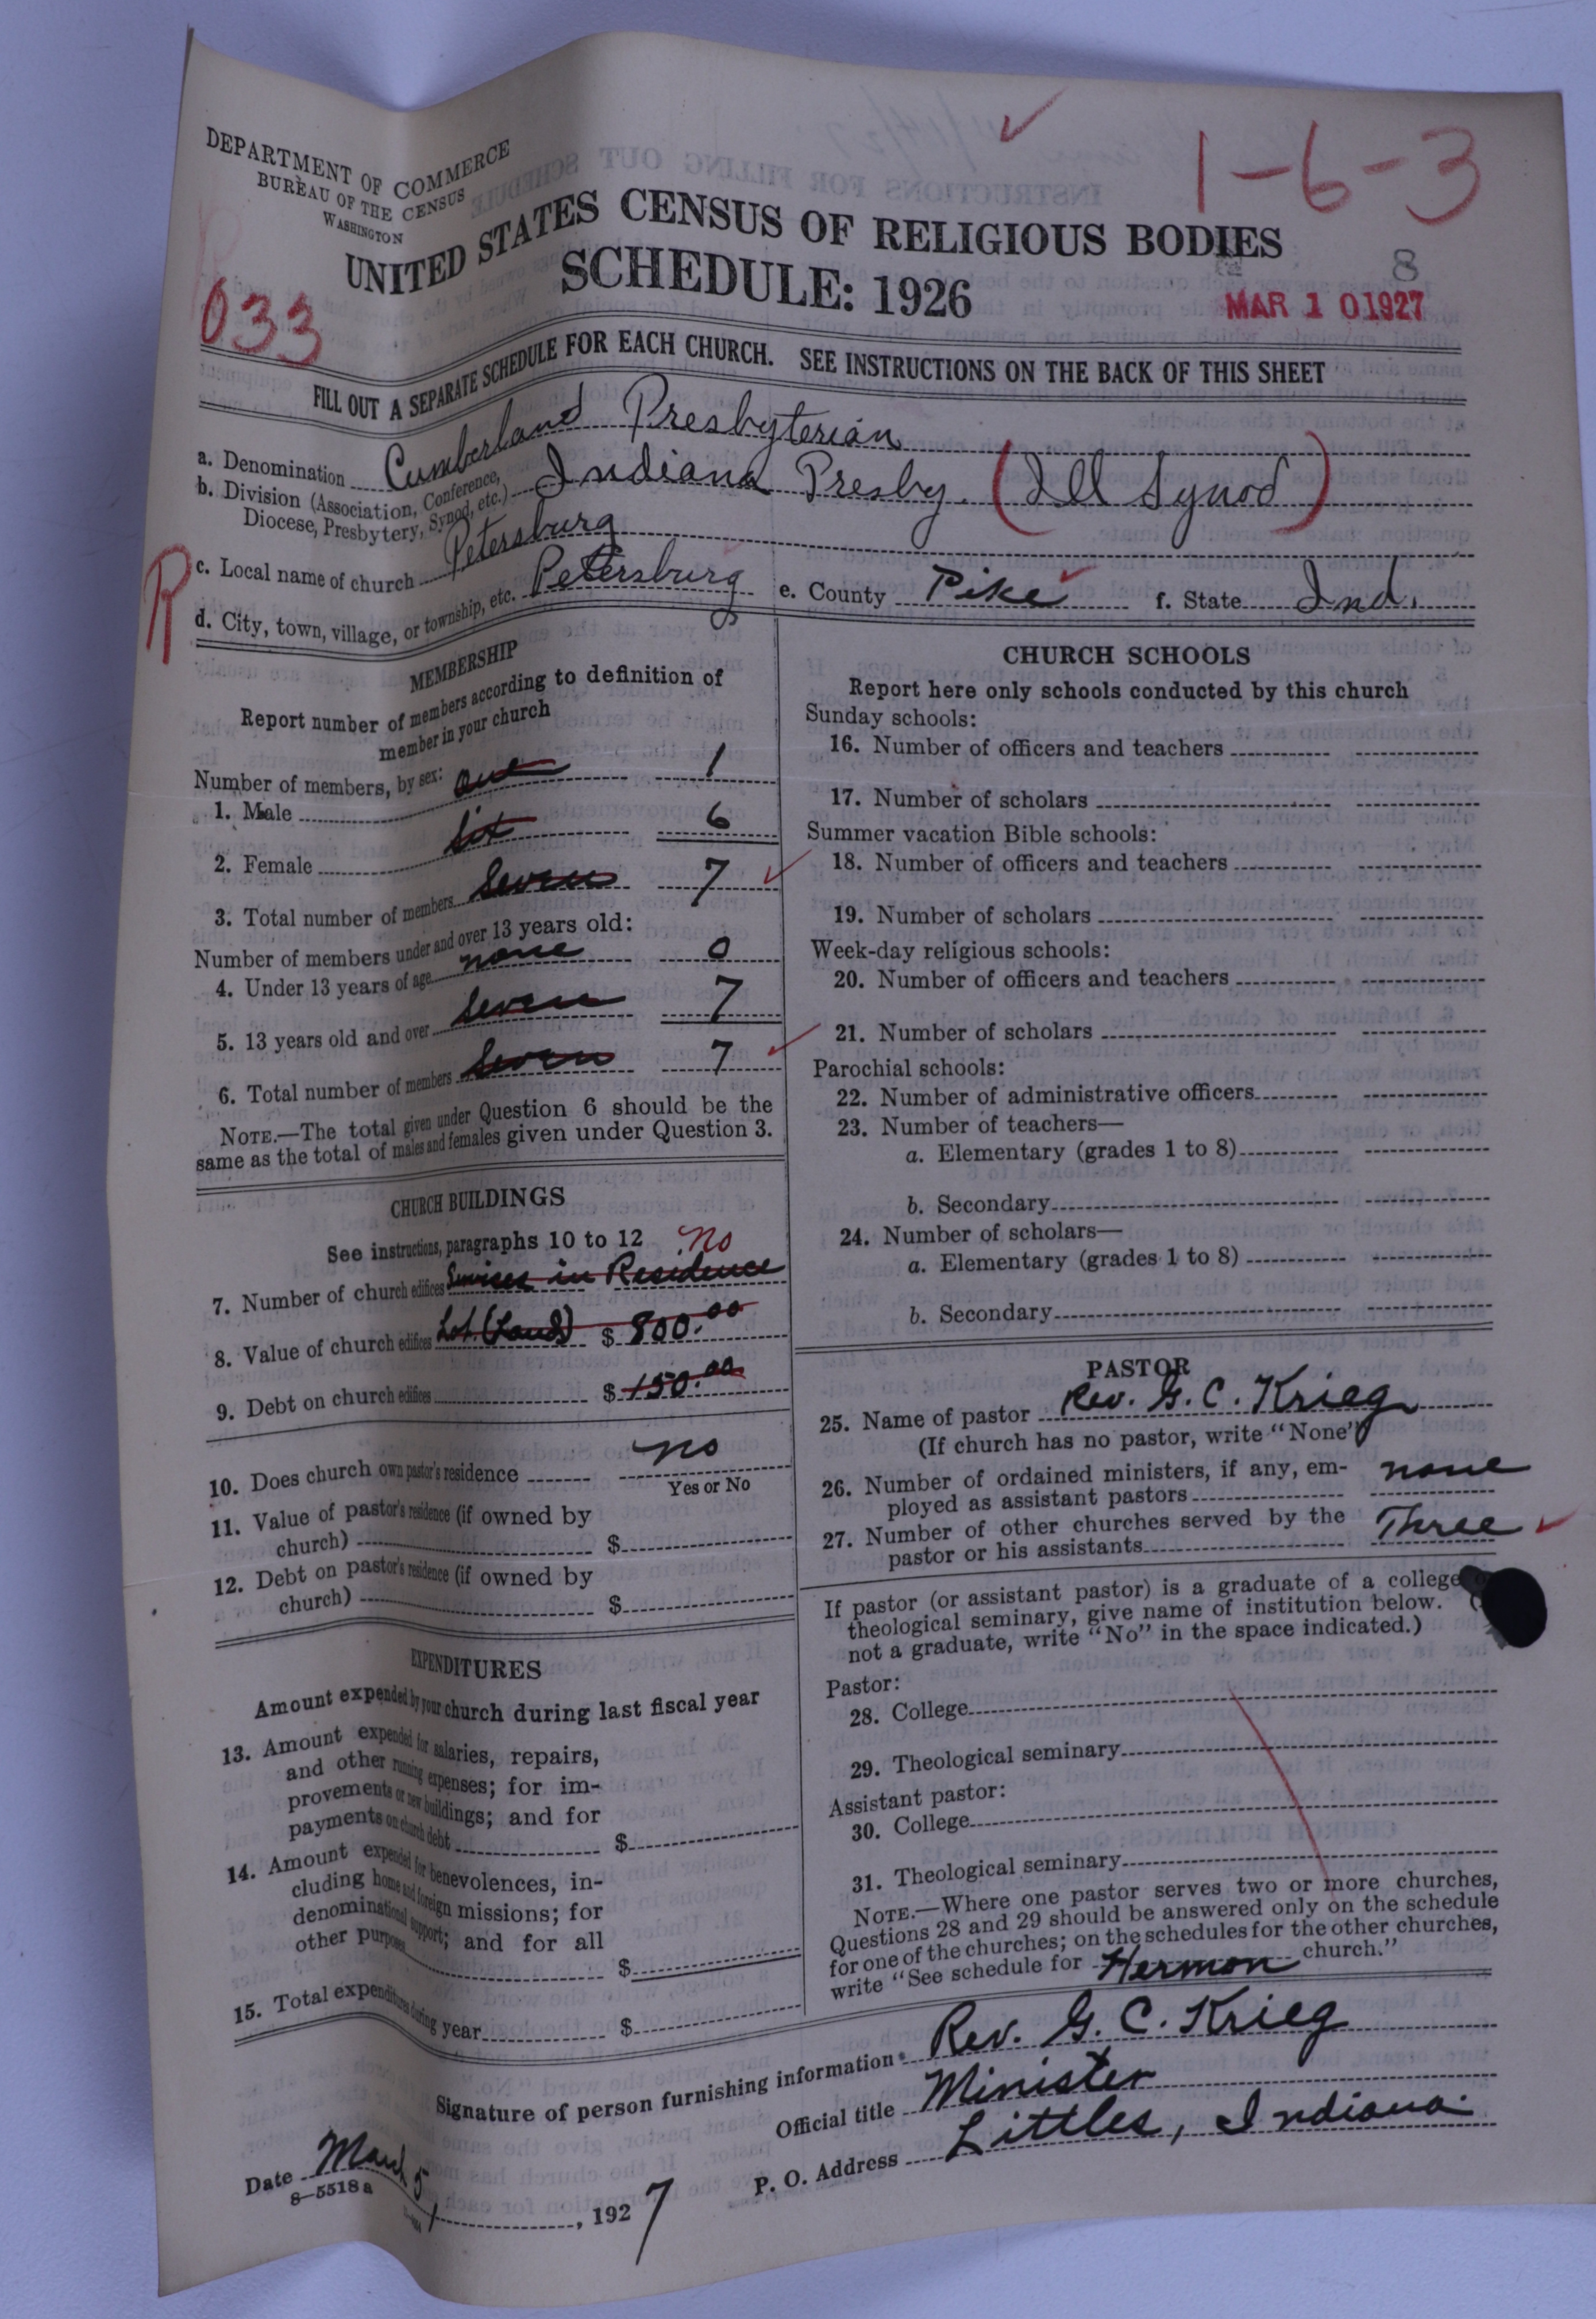 DEPARTMENT OF COMMERCE
BUREAU OF THE CENSUS
WASHINGTON
1-6-3
UNITED STATES CENSUS OF RELIGIOUS BODIES
SCHEDULE: 1926
8
MAR 10 1927
033
FILL OUT A SEPARATE SCHEDULE FOR EACH CHURCH. SEE INSTRUCTIONS ON THE BACK OF THIS SHEET
a. Denomination Cumberland Presbyterian
b. Division (Association, Conference, Diocese, Presbytery, Synod, etc.) Indiana Presby. (Ill Synod)
c. Local name of church Petersburg
R
d. City, town, village, or township, etc. Petersburg e. County Pike f. State Ind.
MEMBERSHIP
Report number of members according to definition of
member in your church
Number of members, by sex:
1. Male one 1
2. Female six 6
3. Total number of members seven 7
Number of members under and over 13 years old:
4. Under 13 years of age none 0
5. 13 years old and over seven 7
6. Total number of members seven 7
NOTE.—The total given under Question 6 should be the
same as the total of males and females given under Question 3.
CHURCH BUILDINGS
See instructions, paragraphs 10 to 12 no
7. Number of church edifices Services in Residence
8. Value of church edifices Lot (Land) $ 800.00
9. Debt on church edifices $ 150.00
10. Does church own pastor's residence no
Yes or No
11. Value of pastor's residence (if owned by
church) $
12. Debt on pastor's residence (if owned by
church) $
EXPENDITURES
Amount expended by your church during last fiscal year
13. Amount expended for salaries, repairs,
and other running expenses; for im-
provements or new buildings; and for
payments on church debt $
14. Amount expended for benevolences, in-
cluding home and foreign missions; for
denominational support; and for all
other purposes $
15. Total expenditures during year $
CHURCH SCHOOLS
Report here only schools conducted by this church
Sunday schools:
16. Number of officers and teachers
17. Number of scholars
Summer vacation Bible schools:
18. Number of officers and teachers
19. Number of scholars
Week-day religious schools:
20. Number of officers and teachers
21. Number of scholars
Parochial schools:
22. Number of administrative officers
23. Number of teachers—
a. Elementary (grades 1 to 8)
b. Secondary
24. Number of scholars—
a. Elementary (grades 1 to 8)
b. Secondary
PASTOR
25. Name of pastor Rev. G. C. Krieg
(If church has no pastor, write "None")
26. Number of ordained ministers, if any, em-
ployed as assistant pastors none
27. Number of other churches served by the
pastor or his assistants Three
If pastor (or assistant pastor) is a graduate of a college
theological seminary, give name of institution below. (
not a graduate, write "No" in the space indicated.)
Pastor:
28. College
29. Theological seminary
Assistant pastor:
30. College
31. Theological seminary
NOTE.—Where one pastor serves two or more churches,
Questions 28 and 29 should be answered only on the schedule
for one of the churches; on the schedules for the other churches,
write "See schedule for Hermon church."
Signature of person furnishing information Rev. G. C. Krieg
Official title Minister
P. O. Address Littles, Indiana.
Date March 5, 1927
8-5518 a